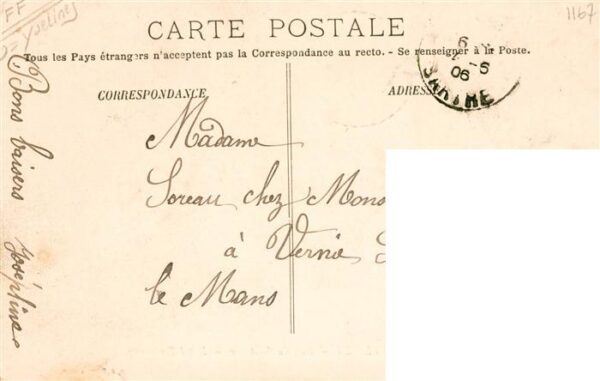 FF
Yvelines
1167
CARTE POSTALE
Tous les Pays étrangers n'acceptent pas la Correspondance au recto. - Se renseigner à la Poste.
CORRESPONDANCE
ADRESS
6
5
06
SARTHE
Madame
Soreau chez Mons
à Vernie
le Mans
Bons baisers Joséphine